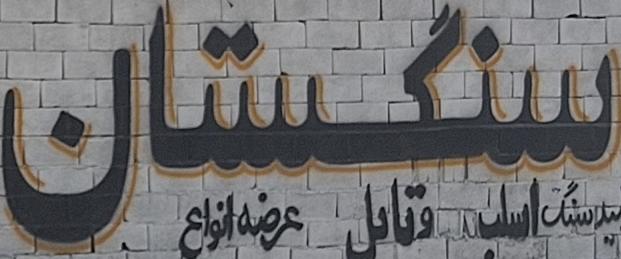 سنگستان
سنگ اسلب وتایل عرضه انواع